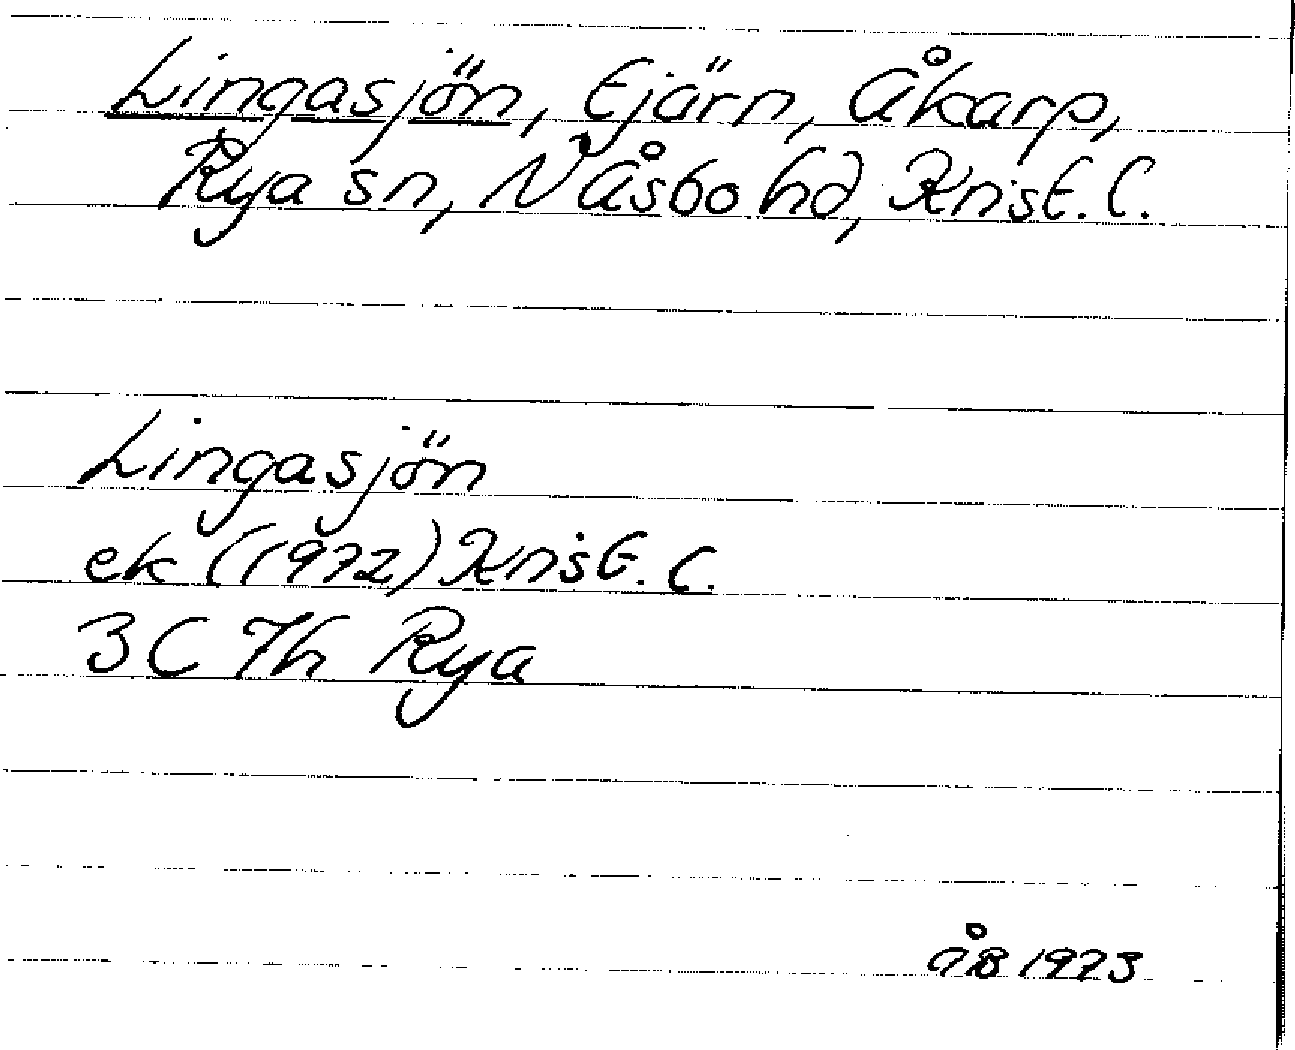 Lingasjön, tjärn, Åkarp,
Rya sn, N Åsbo hd, Krist. l.
Lingasjön
ek (1972) Krist. l.
3C 7h Rya
ÅB 1973